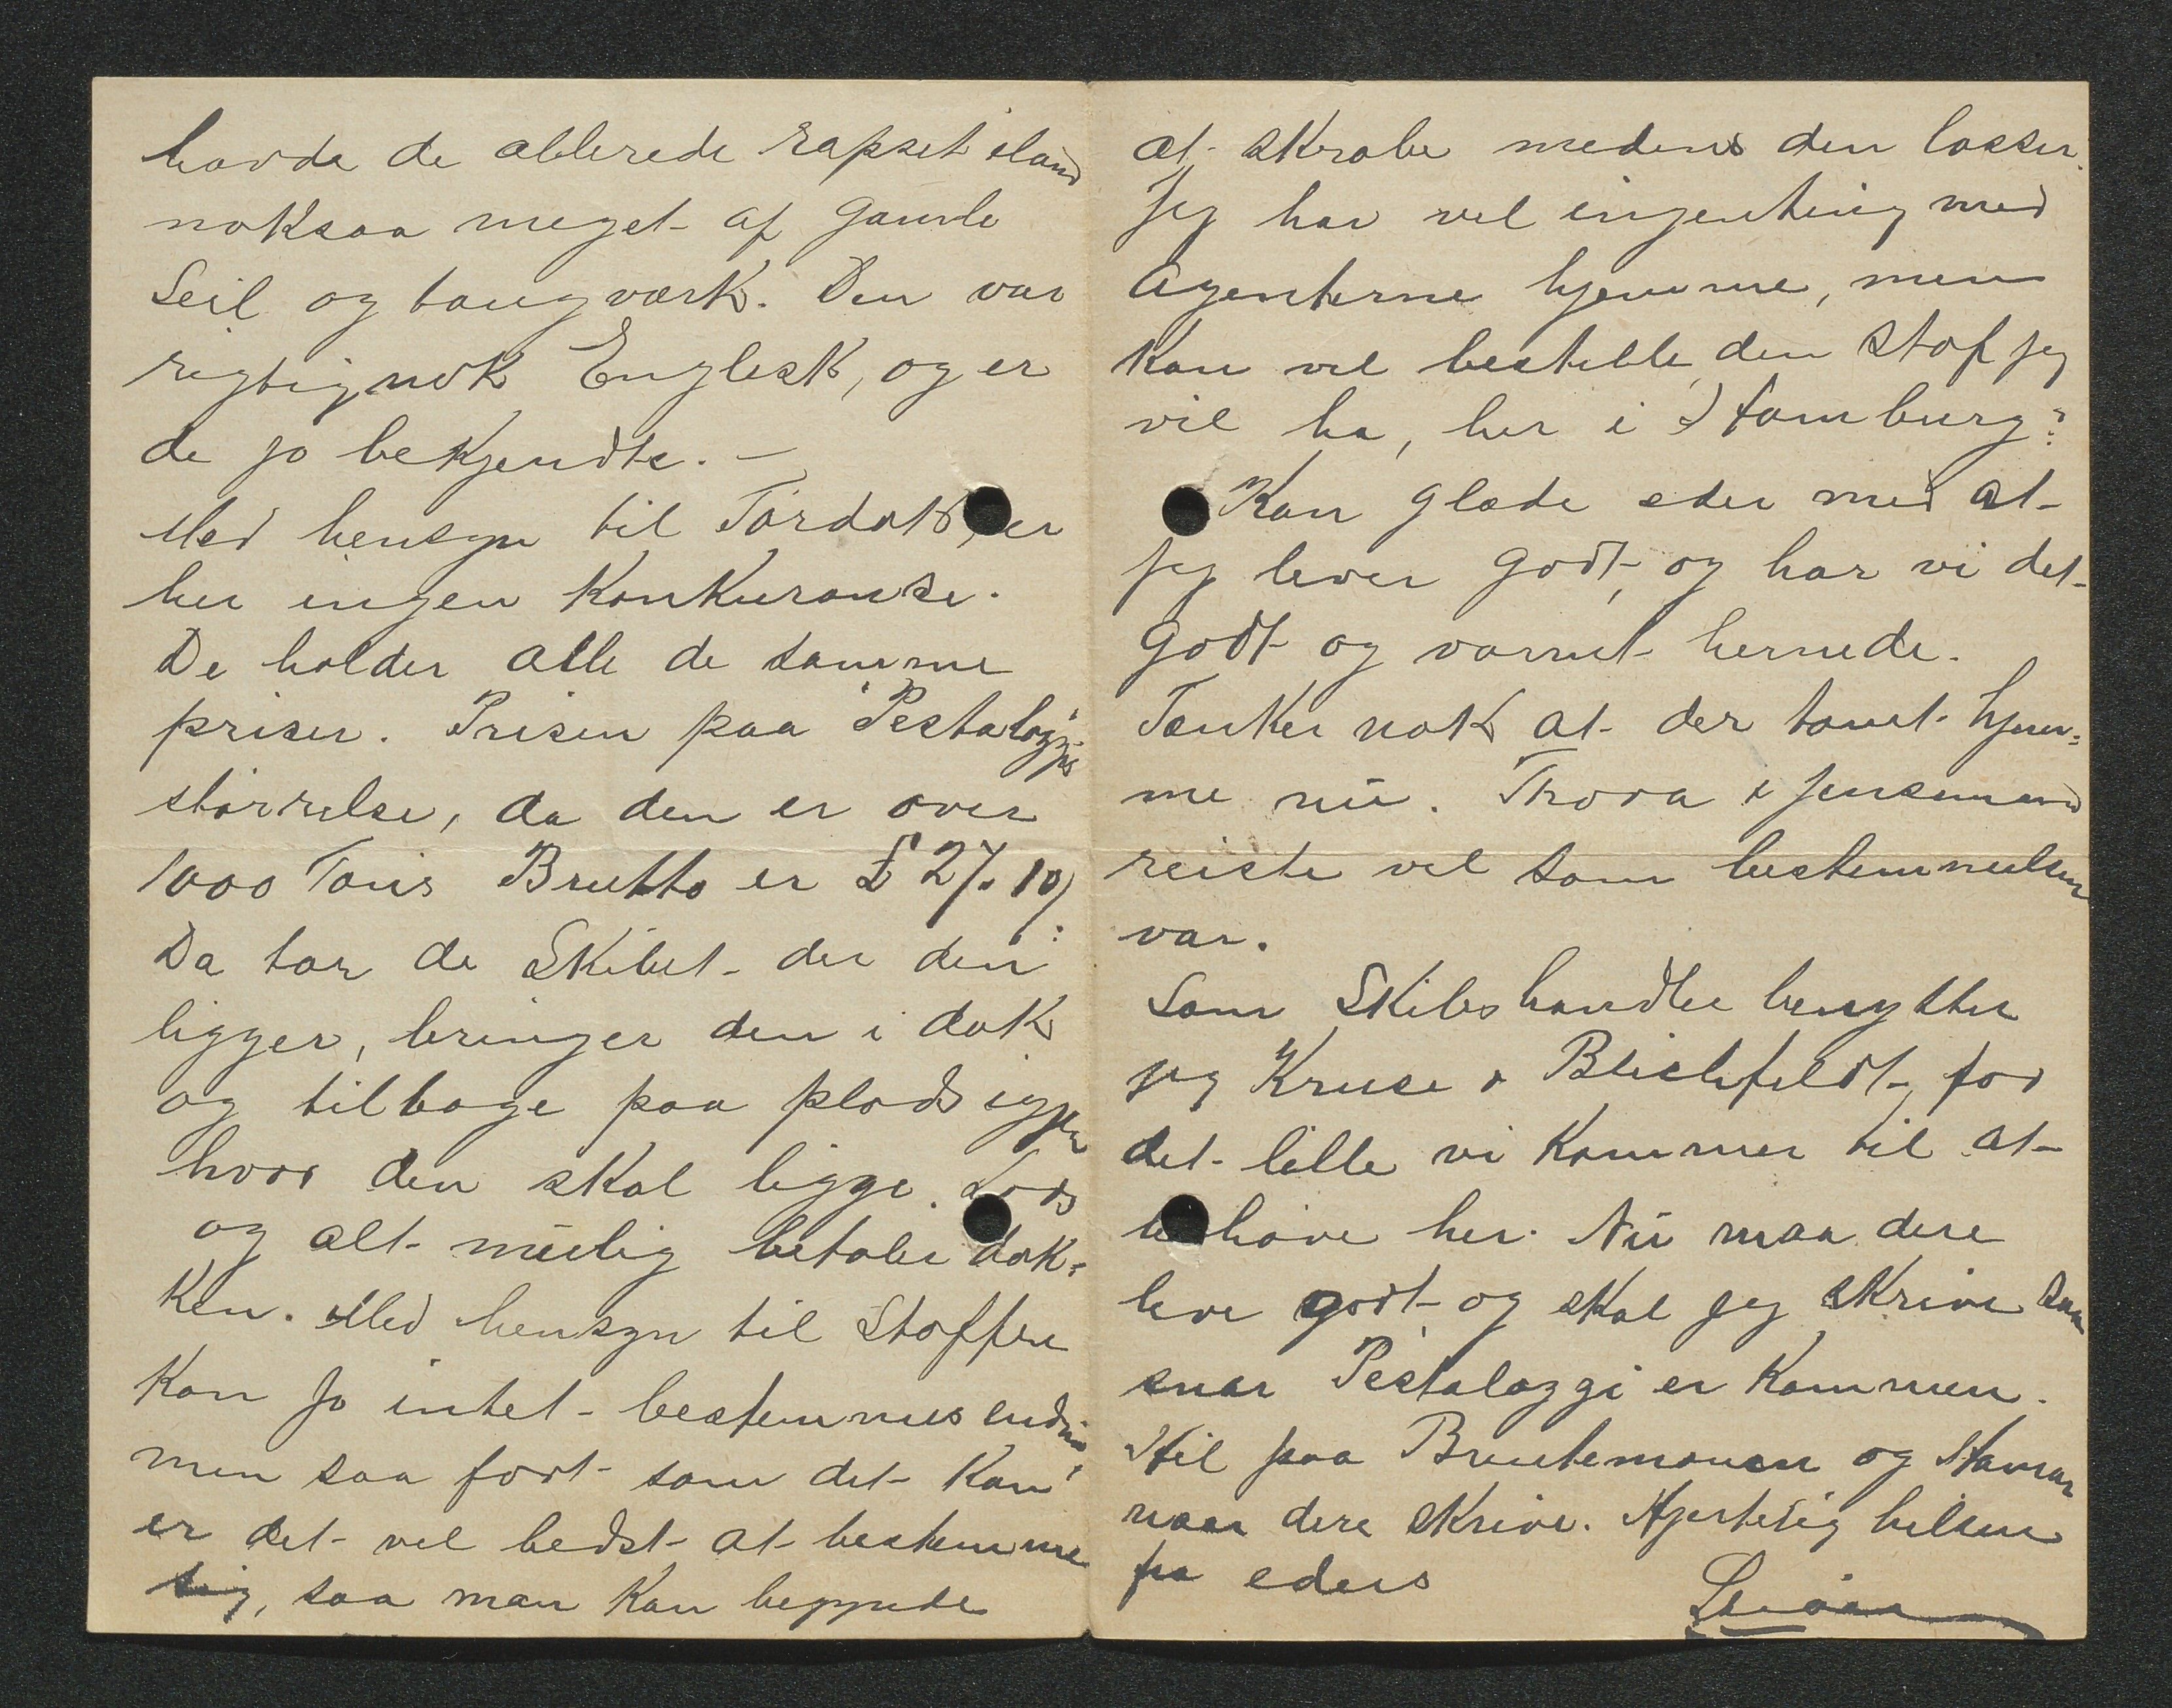 havde de allerede rapset iland
noksaa meget af gamle
Seil og taugværk. Den var
rigtignok Englesk, og er
de jo bekjendte. –
Med hensyn til Tørdok, er
her ingen Konkuranse.
De holder alle de samme
priser. Prisen paa Pestalozzis
størrelse, da den er over
1000 Tons Brutto er £ 27.10/
Da tar de Skibet der den
ligger, bringer den i dok
og tilbage paa plads igjen
hvor den skal ligge. Lods
og alt mulig betaler dok-
ken. Med hensyn til Stoffen
kan jo intet bestemmes endnu,
men saa fort som det kan
er det vel bedst at bestemme
sig, saa man kan begynde
at skrabe medens den losser.
Jeg har vel ingenting med
Agenterne hjemme, men
kan vel bestille den Stof jeg
vil ha, her i Hamburg?
Kan glæde eder med at
jeg lever godt, og har vi det
godt og varmt hernede.
Tænker nok at der tomt hjem=
me nu. Thora & Jensemand
reiste vel som bestemmelsen
var.
Som Skibshandler benytter
jeg Kruse & Blichfeldt, for
det lille vi kommer til at
behøve her. Nu maa dere
leve godt og skal jeg skrive saa
snar Pestalozzi er kommen.
Hil paa Bruutemanen og
naar dere skrive. Hjertelig hilsen
fra eders